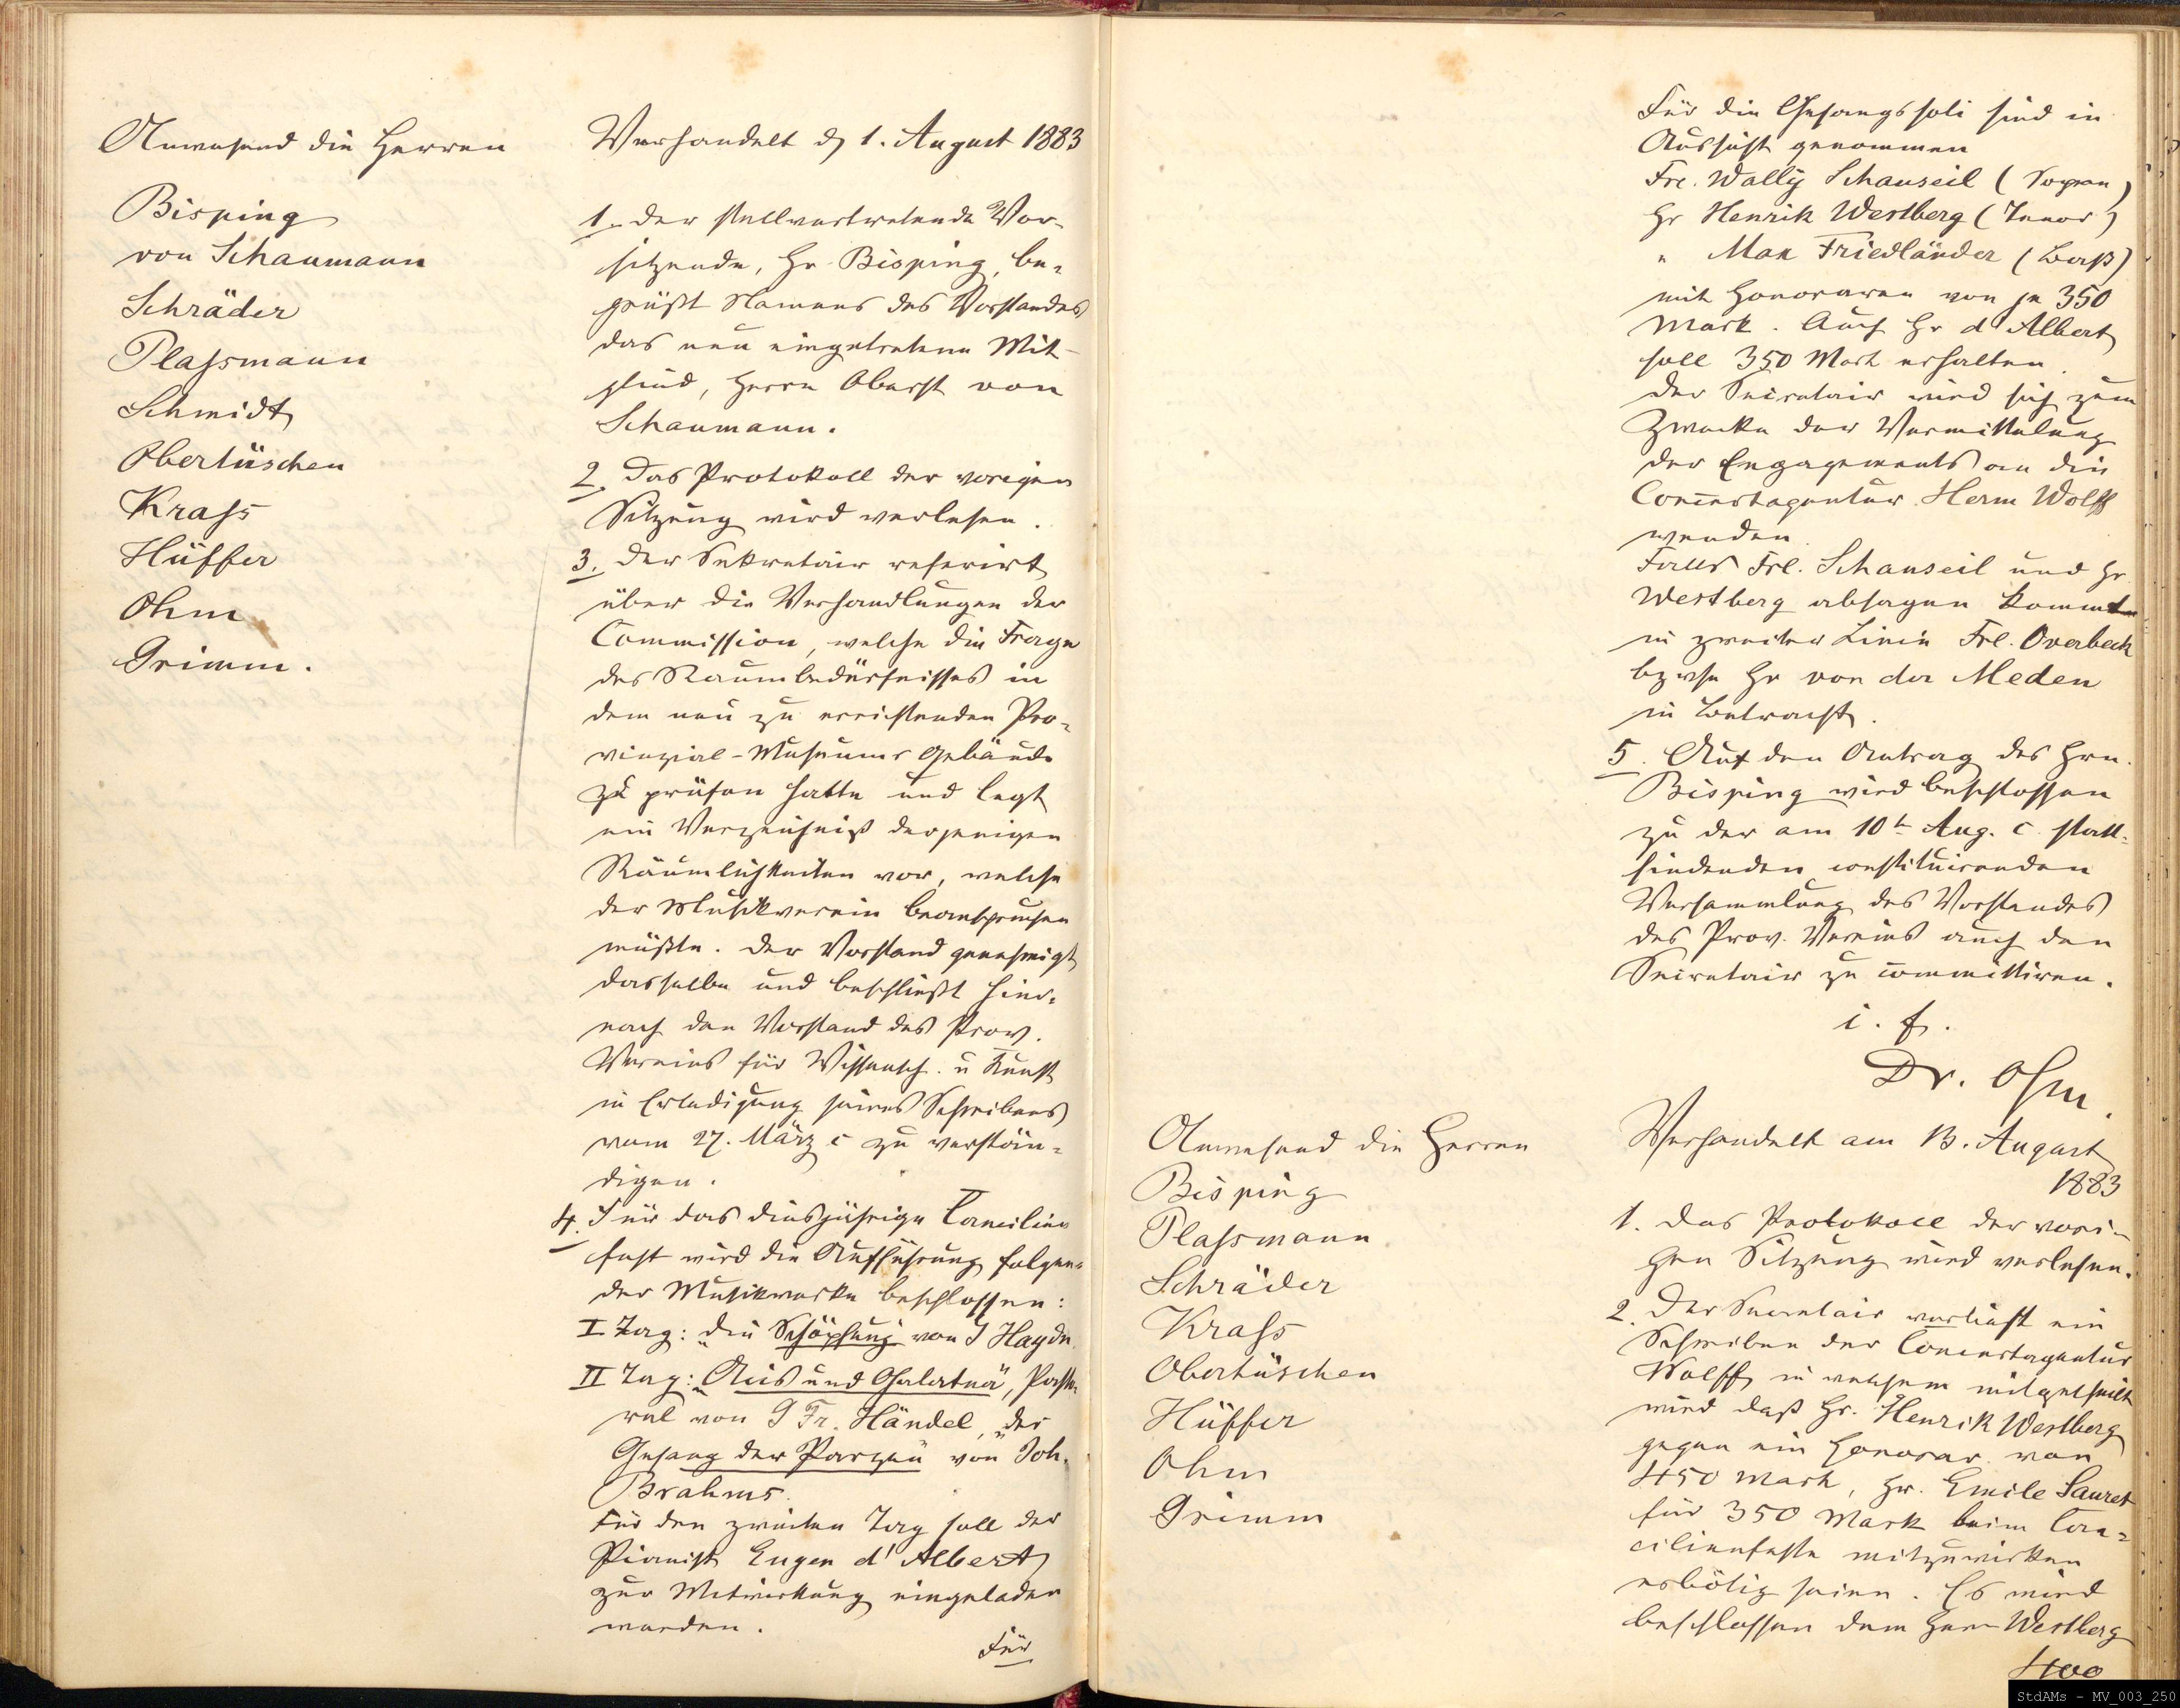 Anwesend die Herren
Bisping
von Schaumann
Schräder
Plassmann
Schmidt
Obertüschen
Krass
Hüffer
Ohm
Grimm.
Verhandelt d 1. August 1883
1. Der stellvertretende Vor-
sitzende, Hr Bisping, be-
grüßt Namens des Vorstandes
das neu eingetretene Mit-
glied, Herrn Oberst von
Schaumann.
2. Das Protokoll der vorigen
Sitzung wird verlesen.
3. Der Sekretair referirt
über die Verhandlungen der
Commission, welche die Frage
des Raumbedürfnisses in
dem neu zu errichtenden Pro-
vinzial-Museums Gebäude
zu prüfen hatte und legt
ein Verzeichniß derjenigen
Räumlichkeiten vor, welche
der Musikverein beanspruchen
müßte. Der Vorstand genehmigt
dasselbe und beschließt hier-
nach den Vorstand des Prov.
Vereins für Wissensch. u Kunst
in Erledigung seines Schreibens
vom 27. März c zu verstän-
digen.
4. Für das diesjährige Caecilien
fest wird die Aufführung folgen-
der Musikwerke beschlossen:
I Tag: Die Schöpfung von J Haydn.
II Tag: „Acis und Galatea", Pasto-
ral von G Fr. Händel, „der
Gesang der Parzen von Joh.
Brahms.
Für den zweiten Tag soll der
Pianist Eugen d'Albert
zur Mitwirkung eingeladen
werden.
Für
Für die Gesangssoli sind in
Aussicht genommen
Frl. Wally Schauseil (Sopran)
Hr Henrik Westberg (Tenor)
" Max Friedländer (Baß)
mit Honoraren von je 350
Mark. Auch Hr d'Albert
soll 350 Mark erhalten.
Der Secretair wird sich zum
Zwecke der Vermittelung
der Engagements an die
Concertagentur Herm Wolff
wenden.
Falls Frl. Schauseil und Hr
Westberg absagen kommt
in zweiter Linie Frl. Overbeck
bzwse Hr von der Meden
in Betracht.
5. Auf den Antrag des Hrn.
Bisping wird beschlossen
zu der am 10t Aug. c. statt-
findenden constituirenden
Versammlung des Vorstandes
des Prov. Vereins auch den
Secretair zu committiren.
i. f.
Dr. Ohm.
Anwesend die Herren
Bisping
Plassmann
Schräder
Krass
Obertüschen
Hüffer
Ohm
Grimm
Verhandelt am 13. August
1883
1. Das Protokoll der vori-
gen Sitzung wird verlesen.
2. Der Secretair verliest ein
Schreiben der Concertagentur
Wolff, in welchem mitgetheilt
wird daß Hr. Henrik Westberg
gegen ein Honorar von
450 Mark, Hr. Emile Sauret
für 350 Mark beim Cae-
cilienfeste mitzuwirken
erbötig seien. Es wird
beschlossen dem Herrn Westberg
400
StdAMs - MV_003_250